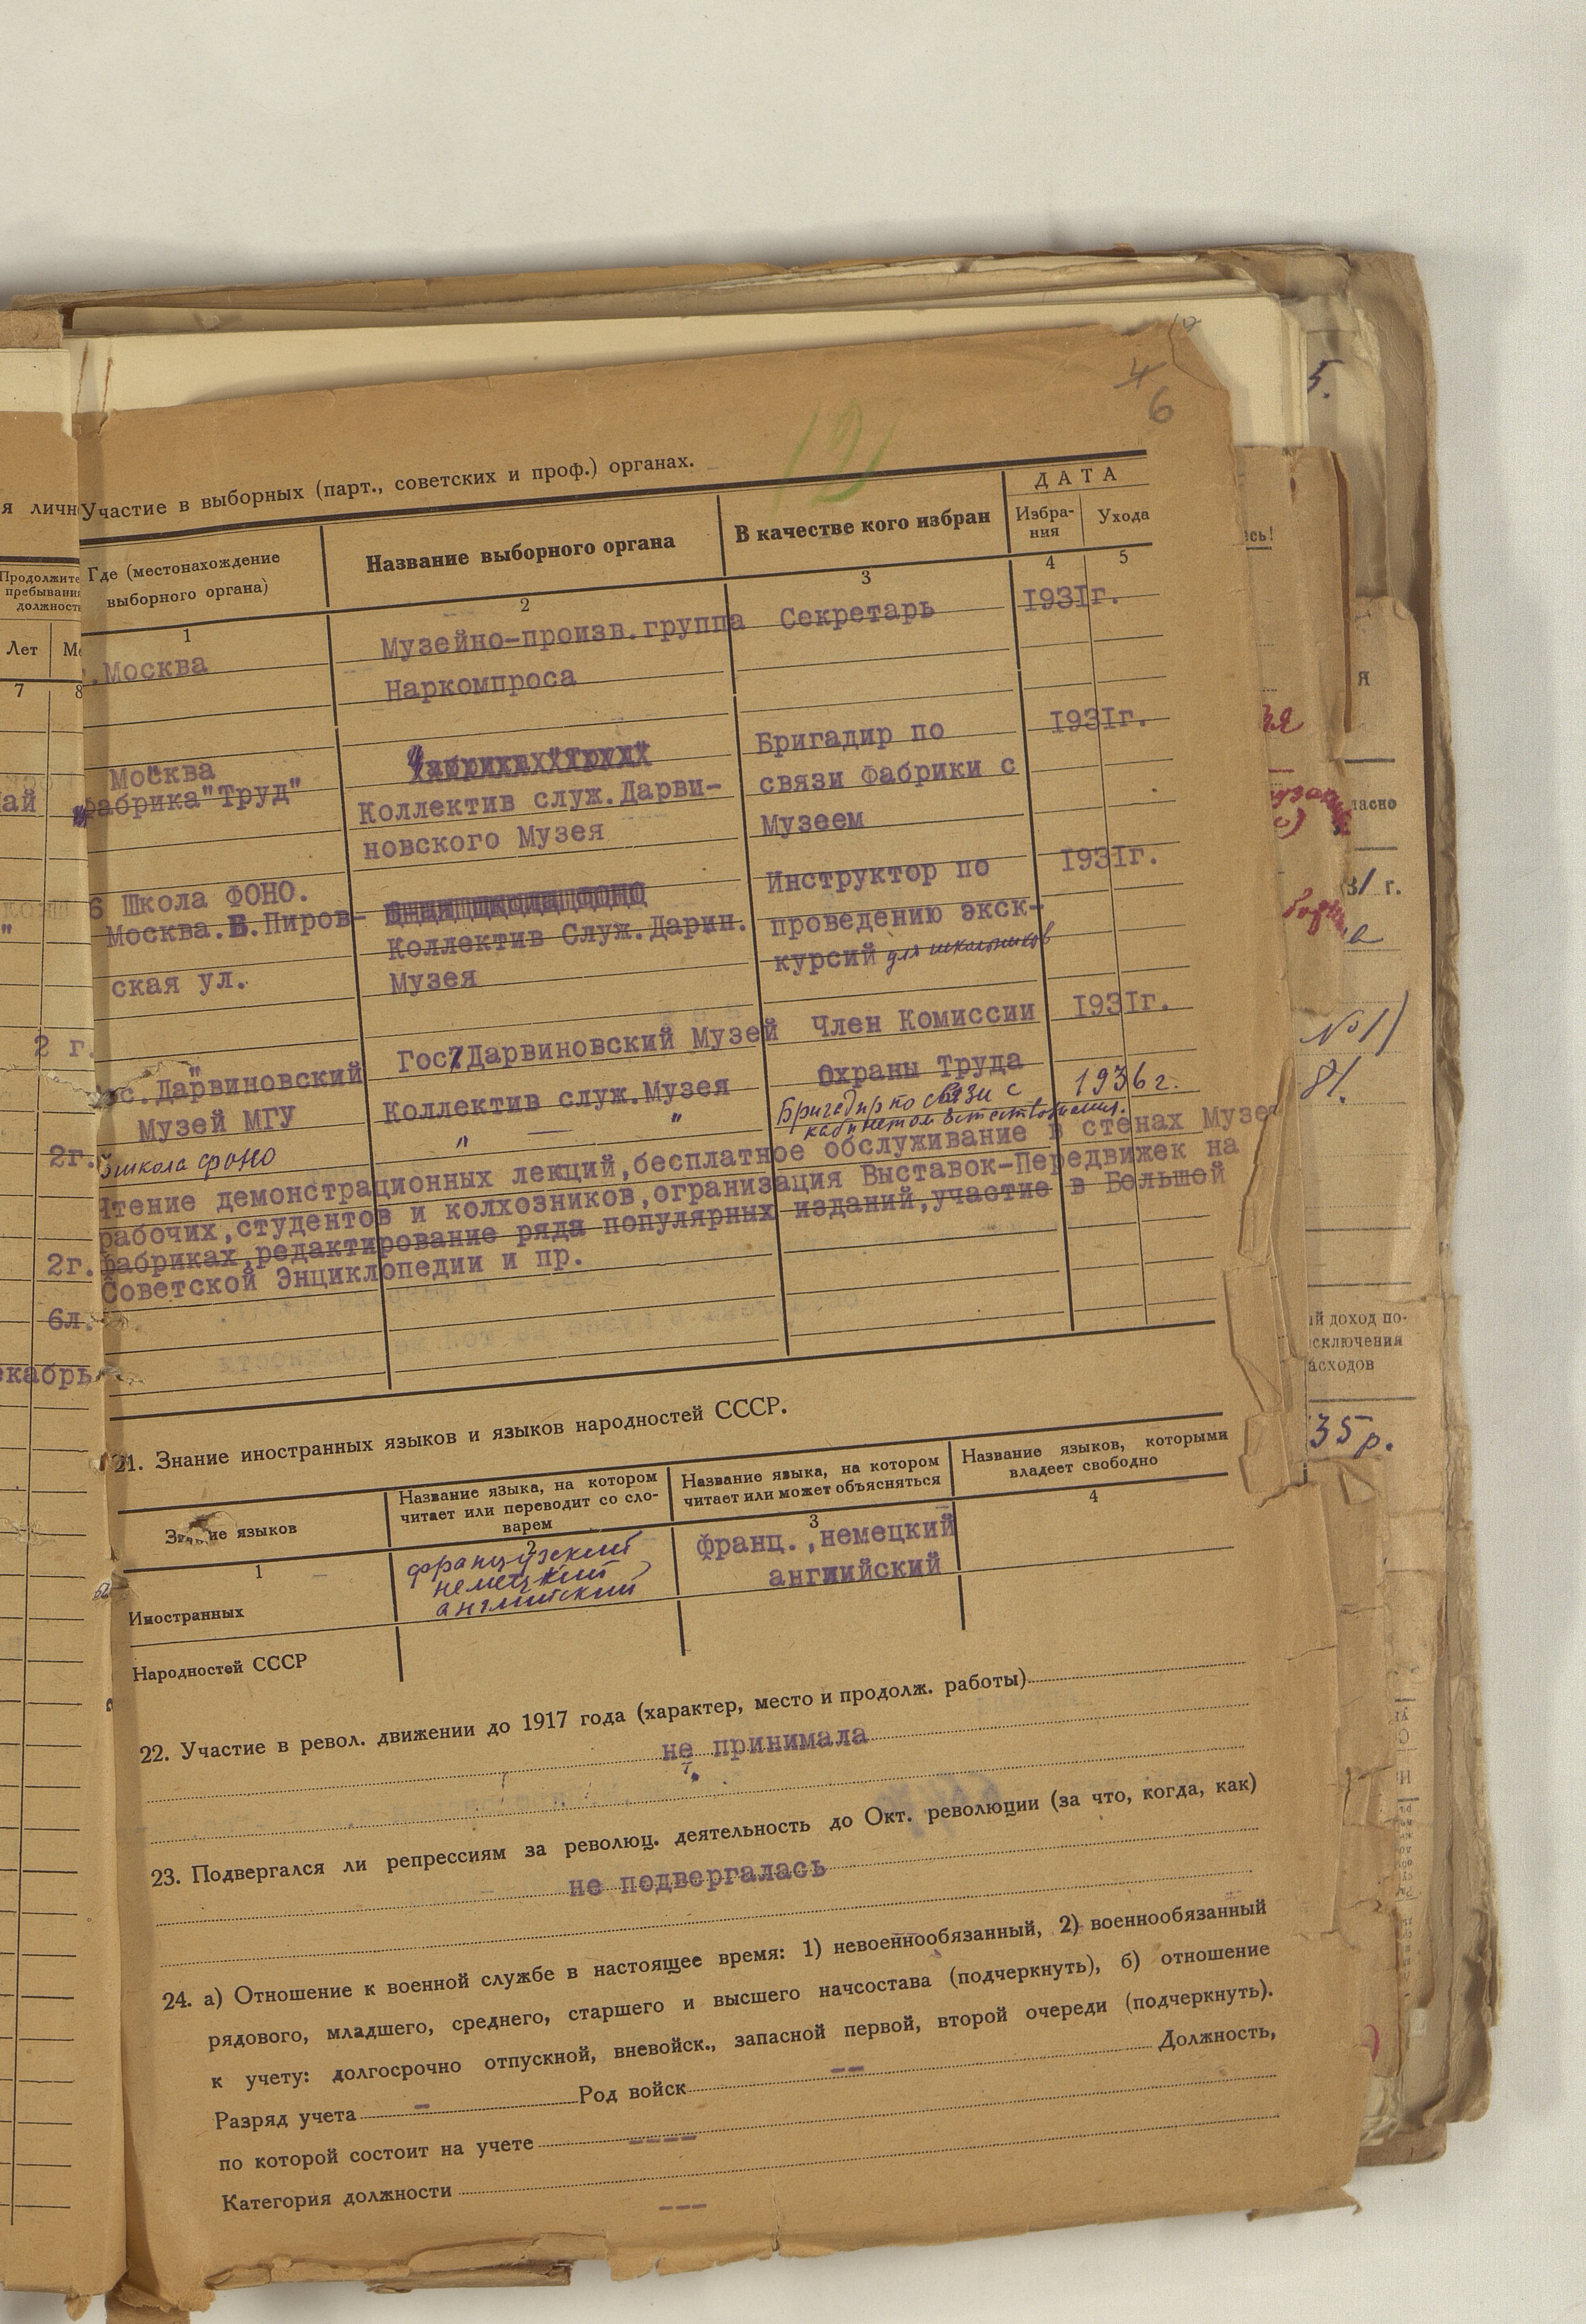 12
4
6
Участие в выборных (парт., советских и проф.) органах.
Где (местонахождение выборного органа)
Название выборного органа
В качестве кого избран
ДАТА
Избра-
ния
Ухода
1
2
3
4
5
.Москва
Музейно-произв.группа
Секретарь
1931г.
Наркомпроса
Москва
Бригадир по
1931г.
фабрика "Труд"
Коллектив служ.Дарви-
связи Фабрики с
новского Музея
Музеем
6 Школа ФОНО.
Инструктор по
1931г.
Москва.Б.Пиров-
Коллектив Служ.Дарин.
проведению экск-
ская ул.
Музея
курсий для школьников
Гос. Дарвиновский Музей
Член Комиссии
1931г.
ос. Дарвиновский
Коллектив служ.Музея
Охраны Труда
Музей МГУ
" — "
Бригадир по связи с
1936 г.
кабинетом Естествознания.
школа ФОНО
Чтение демонстрационных лекций,бесплатное обслуживание в стенах Музе
рабочих,студентов и колхозников,огранизация Выставок-Передвижек на
фабриках,редактирование ряда популярных изданий,участие в Большой
Советской Энциклопедии и пр.
21. Знание иностранных языков и языков народностей СССР.
Знание языков
Название языка, на котором
читает или переводит со сло-
варем
Название языка, на котором
читает или может объясняться
Название языков, которыми
владеет свободно
1
2
3
4
Иностранных
французский
немецкий
английский
франц.,немецкий
ангиийский
Народностей СССР
22. Участие в револ. движении до 1917 года (характер, место и продолж. работы)
не принимала
23. Подвергался ли репрессиям за революц. деятельность до Окт. революции (за что, когда, как)
не подвергалась
24. а) Отношение к военной службе в настоящее время: 1) невоеннообязанный, 2) военнообязанный
рядового, младшего, среднего, старшего и высшего начсостава (подчеркнуть), б) отношение
к учету: долгосрочно отпускной, вневойск., запасной первой, второй очереди (подчеркнуть).
Разряд учета – Род войск -- Должность,
по которой состоит на учете ----
Категория должности ---
я личн
Продолжите
пребывани
должност
Лет
Ме
7
8
ай
"
2 г.
2г.
2г.
6л.
екабрь
5.
сь!
я
ласно
31 г.
№ 1)
81.
ий доход по-
сключения
асходов
35 р.